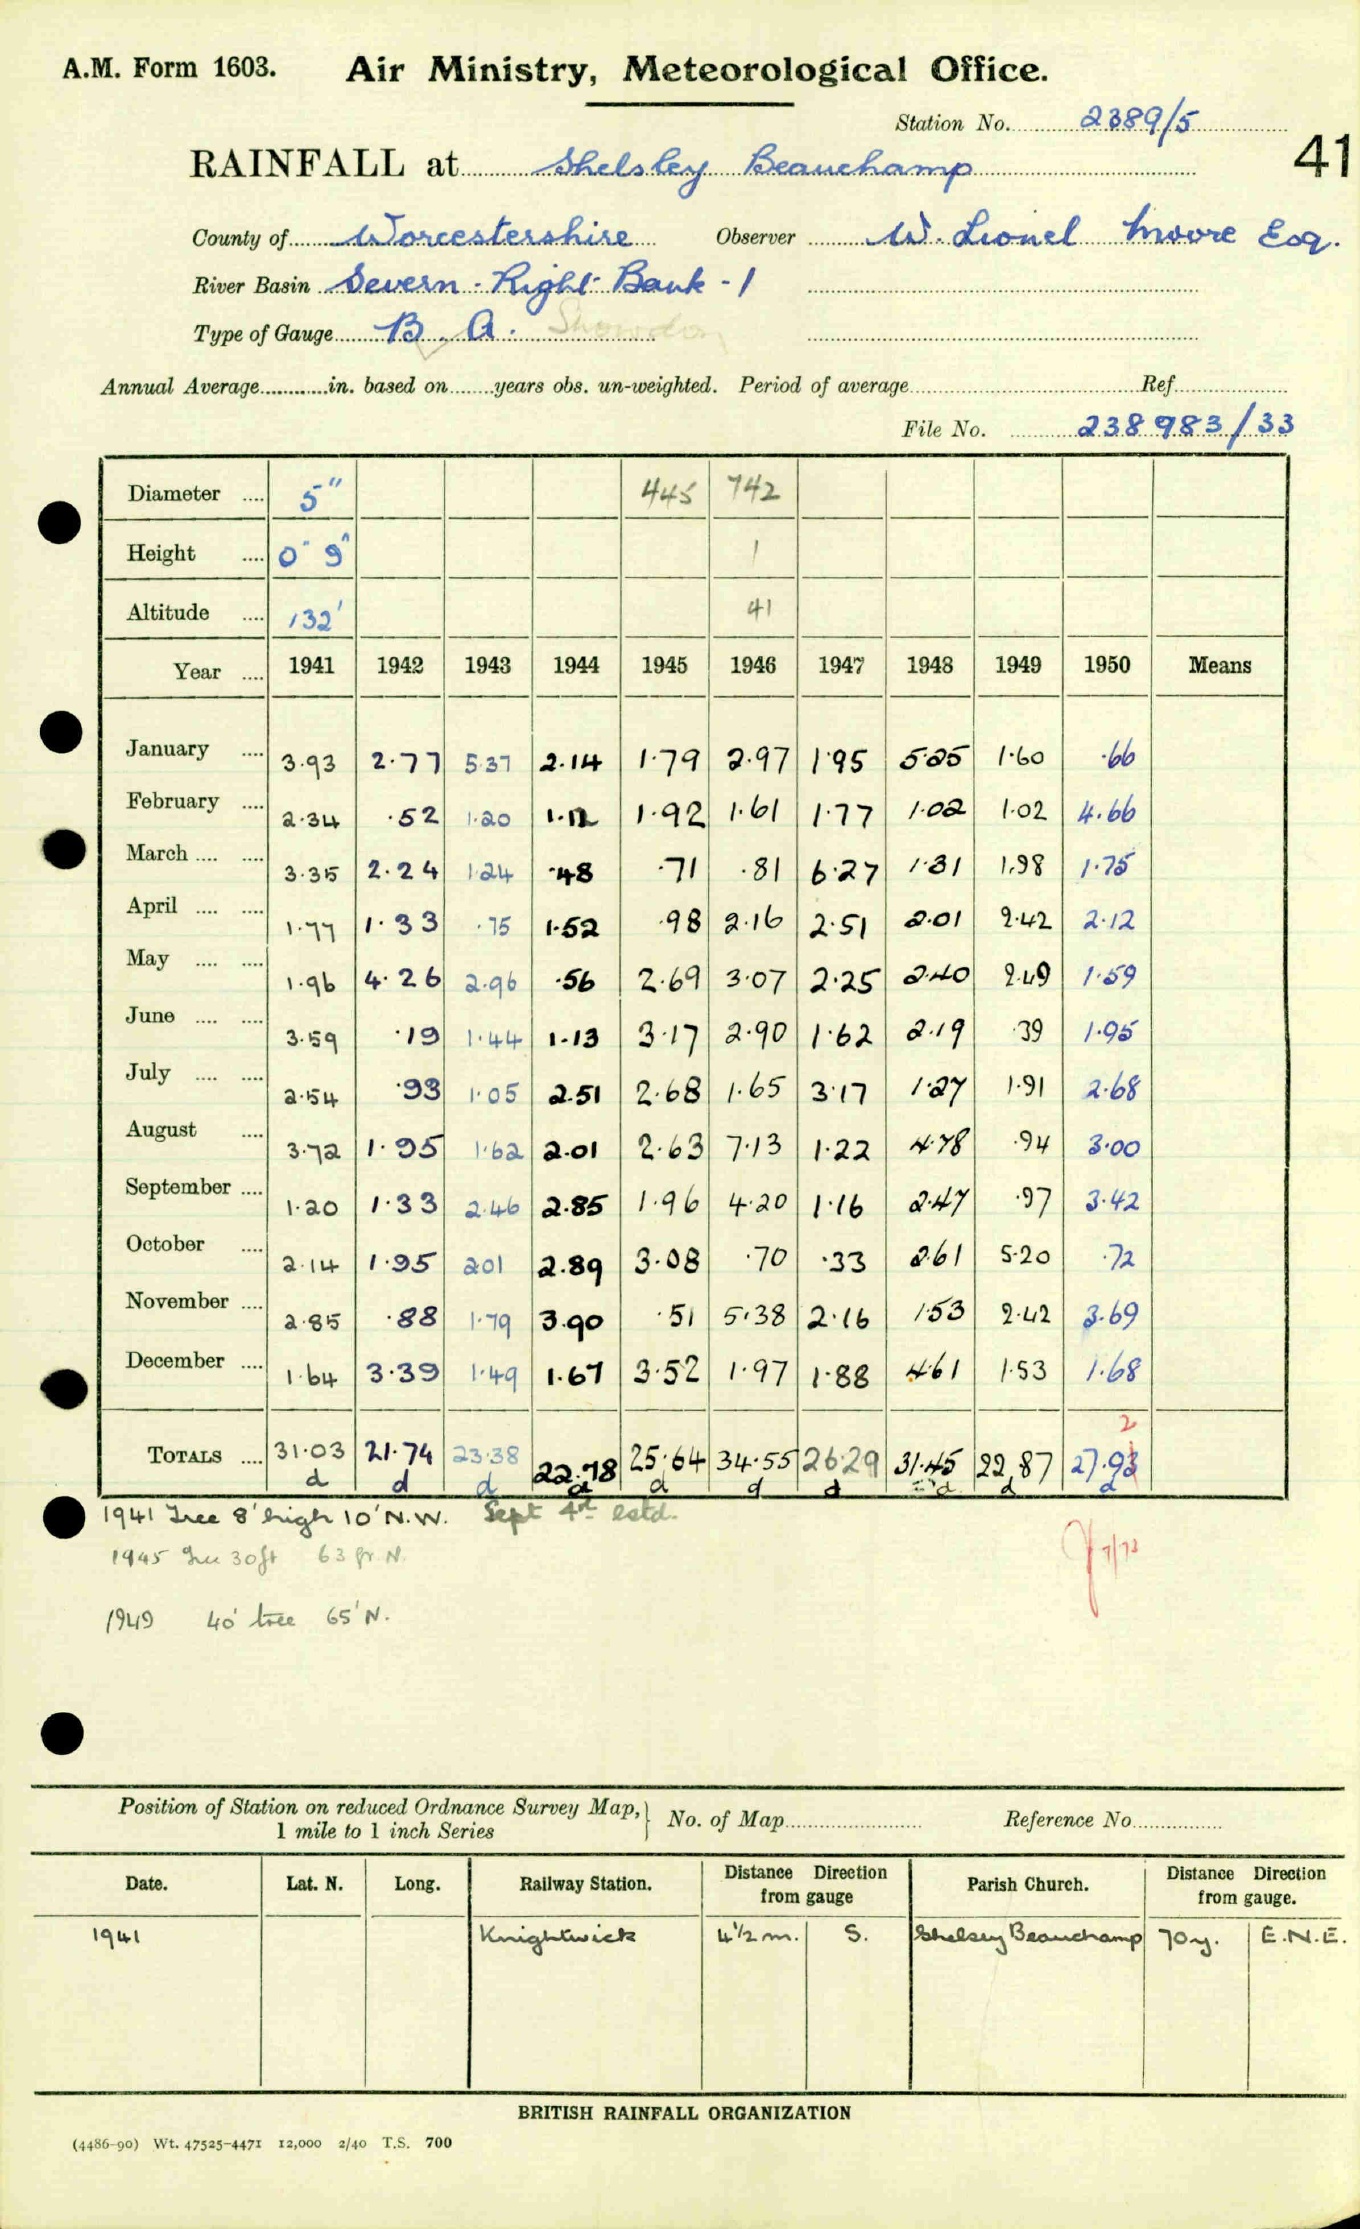 A.M. Form 1603. Air Ministry, Meteorological Office.
Station No. 2389/5
41
RAINFALL at Shelsley Beauchamp
County of Worcestershire Observer W. Lionel Moore Esq.
River Basin Severn - Right Bank - 1
Type of Gauge B. A. Snowdon
Annual Average in. based on years obs. un-weighted. Period of average Ref
File No. 238983/33
Diameter 5" 445 742
Height 0" 9" 1
Altitude 132' 41
Year 1941 1942 1943 1944 1945 1946 1947 1948 1949 1950 Means
January 3.93 2.77 5.37 2.14 1.79 2.97 1.95 5.25 1.60 .66
February 2.34 .52 1.20 1.12 1.92 1.61 1.77 1.02 1.02 4.66
March 3.35 2.24 1.24 .48 .71 .81 6.27 1.31 1.98 1.75
April 1.77 1.33 .75 1.52 .98 2.16 2.51 2.01 2.42 2.12
May 1.96 4.26 2.96 .56 2.69 3.07 2.25 2.40 2.49 1.59
June 3.59 .19 1.44 1.13 3.17 2.90 1.62 2.19 .39 1.95
July 2.54 .93 1.05 2.51 2.68 1.65 3.17 1.27 1.91 2.68
August 3.72 1.95 1.62 2.01 2.63 7.13 1.22 4.78 .94 3.00
September 1.20 1.33 2.46 2.85 1.96 4.20 1.16 2.47 .97 3.42
October 2.14 1.95 2.01 2.89 3.08 .70 .33 2.61 5.20 .72
November 2.85 .88 1.79 3.90 .51 5.38 2.16 1.53 2.42 3.69
December 1.64 3.39 1.49 1.67 3.52 1.97 1.88 4.61 1.53 1.68
2
TOTALS 31.03 21.74 23.38 22.78 25.64 34.55 26.29 31.45 22.87 27.93
d d d d d d d d d d
1941 Tree 8' high 10' N.W. Sept 4th estd.
1945 Tree 30ft 63 N.
7/72
1949 40' tree 65' N.
Position of Station on reduced Ordnance Survey Map, 1 mile to 1 inch Series No. of Map Reference No.
Date. Lat. N. Long. Railway Station. Distance Direction from gauge Parish Church. Distance Direction from gauge.
1941 Knightwick 4½ m. S. Shelsey Beauchamp 70 y. E.N.E.
BRITISH RAINFALL ORGANIZATION
(4486-90) Wt. 47525-4471 12,000 2/40 T.S. 700